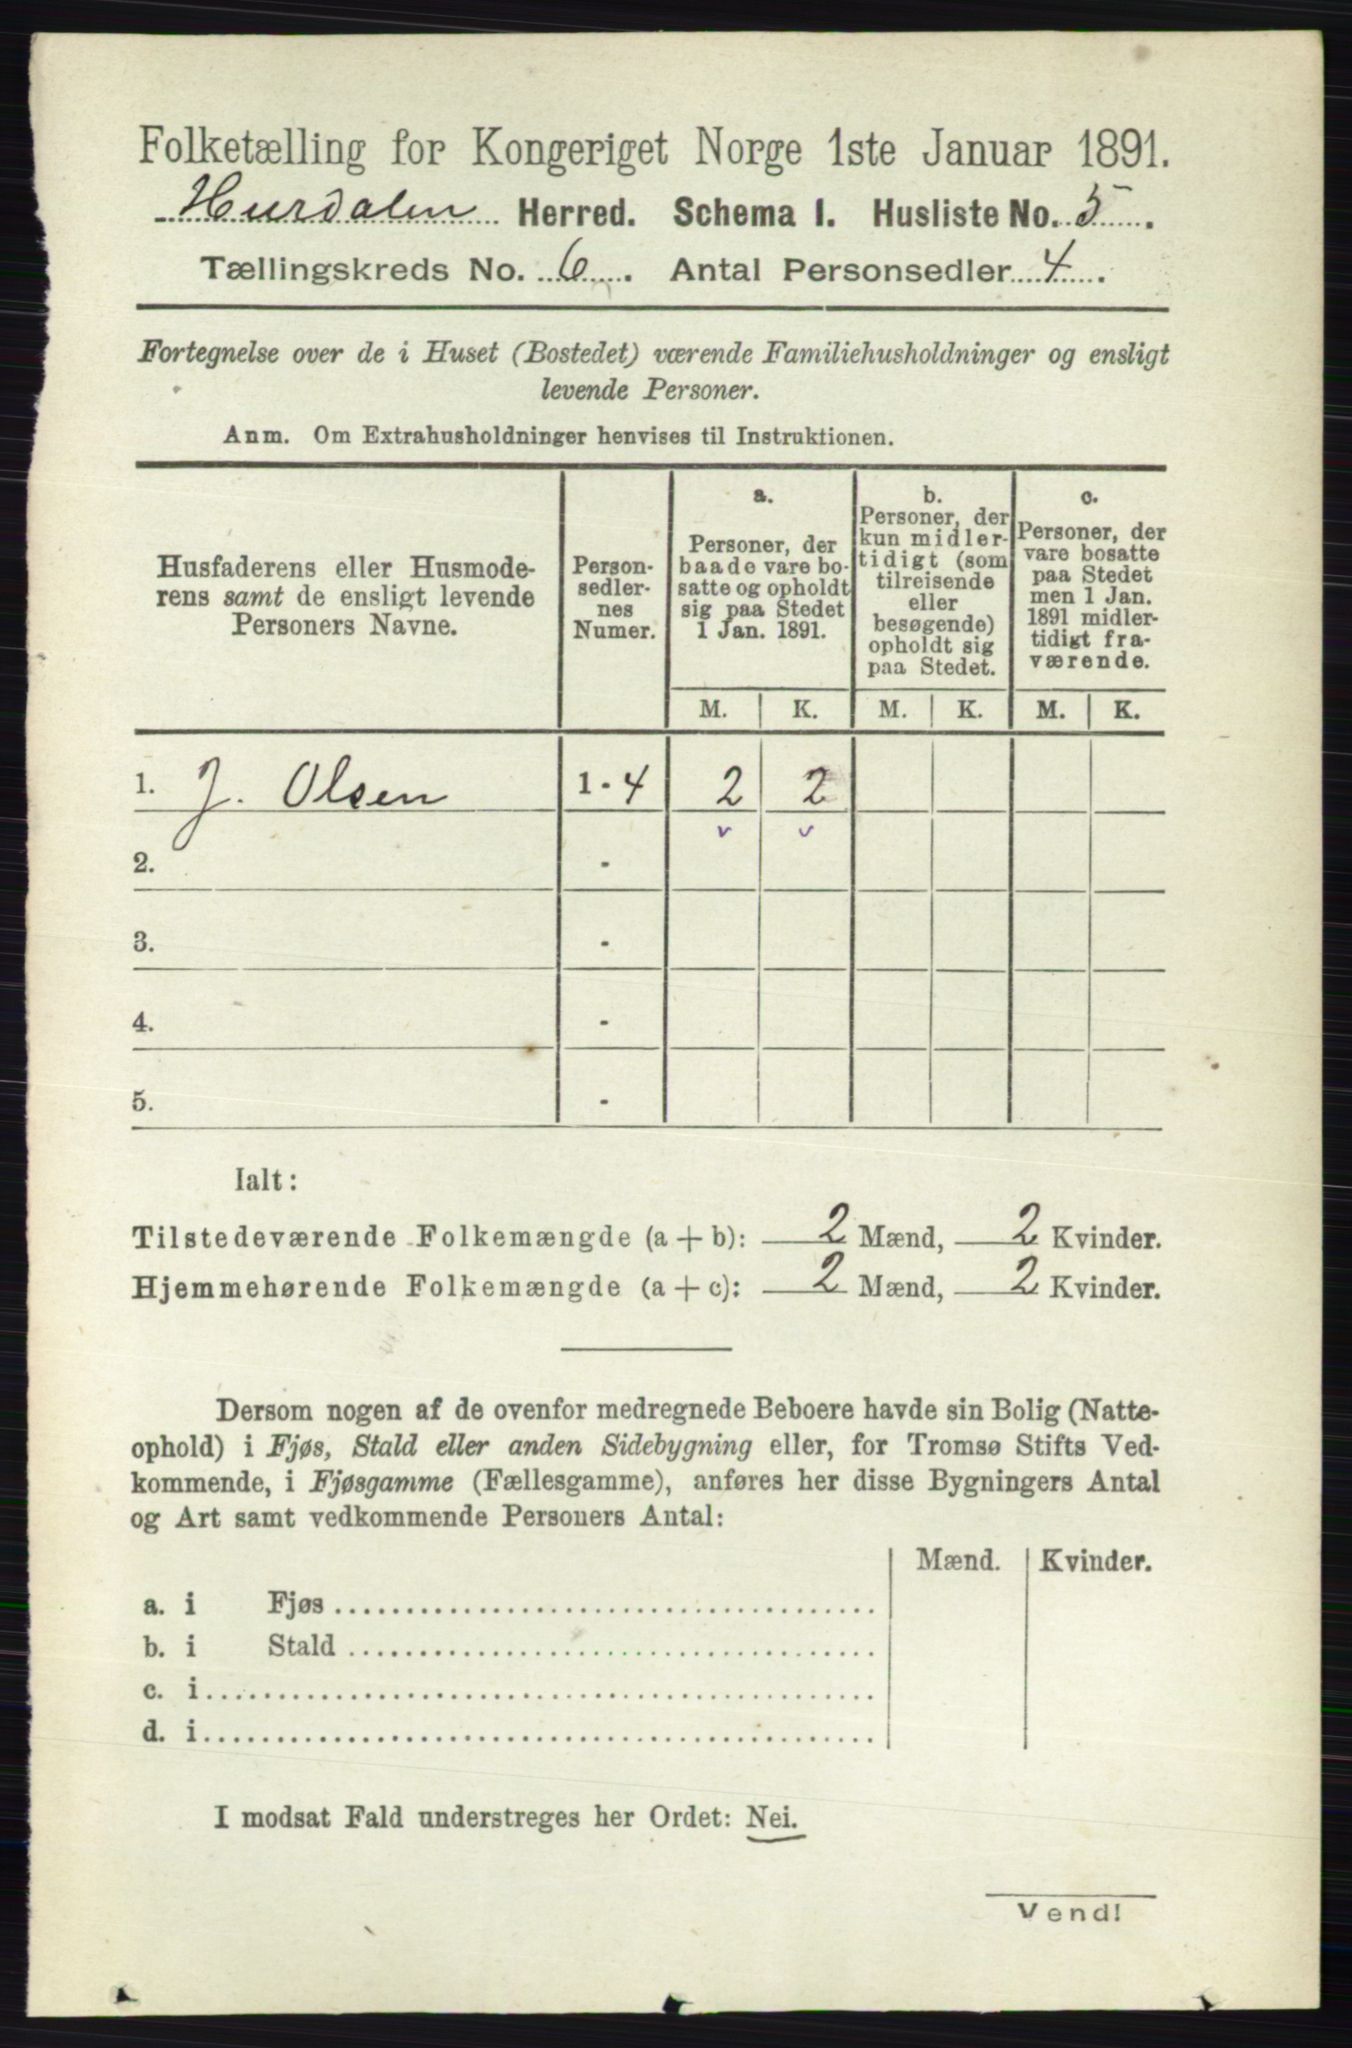 Folketælling for Kongeriget Norge 1ste Januar 1891.
Hurdalen Herred. Schema I. Husliste No. 5.
Tællingskreds No. 6. Antal Personsedler 4.
Fortegnelse over de i Huset (Bostedet) værende Familiehusholdninger og ensligt
levende Personer.
Anm. Om Extrahusholdninger henvises til Instruktionen.
Husfaderens eller Husmode-
rens samt de ensligt levende
Personers Navne.
Person-
sedler-
nes
Numer.
a.
Personer, der
baade vare bo-
satte og opholdt
sig paa Stedet
1 Jan. 1891.
b.
Personer, der
kun midler-
tidigt (som
tilreisende
eller
besøgende)
opholdt sig
paa Stedet.
c.
Personer, der
vare bosatte
paa Stedet
men 1 Jan.
1891 midler-
tidigt fra-
værende.
M. K. M. K. M. K.
1. J. Olsen 1 - 4 2 2
v v
2. -
3. -
4. -
5. -
Ialt:
Tilstedeværende Folkemængde (a + b): 2 Mænd, 2 Kvinder.
Hjemmehørende Folkemængde (a + c): 2 Mænd, 2 Kvinder.
Dersom nogen af de ovenfor medregnede Beboere havde sin Bolig (Natte-
ophold) i Fjøs, Stald eller anden Sidebygning eller, for Tromsø Stifts Ved-
kommende, i Fjøsgamme (Fællesgamme), anføres her disse Bygningers Antal
og Art samt vedkommende Personers Antal:
Mænd. Kvinder.
a. i Fjøs
b. i Stald
c. i
d. i
I modsat Fald understreges her Ordet: Nei.
Vend!